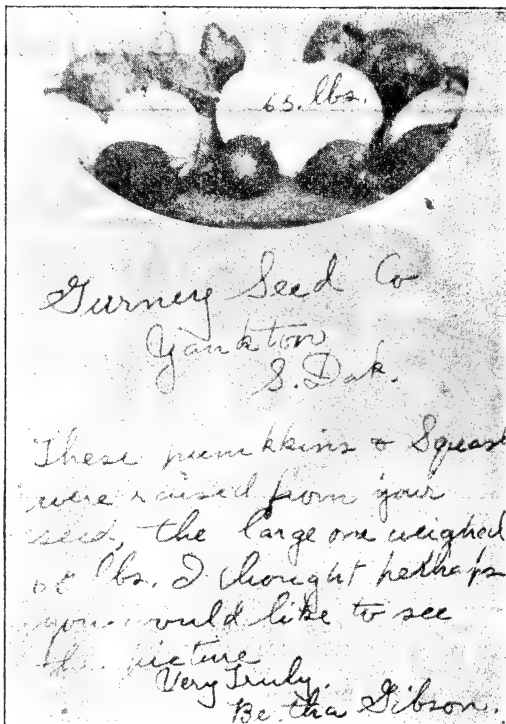 65. lbs.
Gurney Seed Co
Yankton
S. Dak.
These pumkkins & Squash
were raised from your
seed, the large one weighed
lbs. I thought perhaps
you would like to see
the picture
Very Truly.
Bertha Gibson.